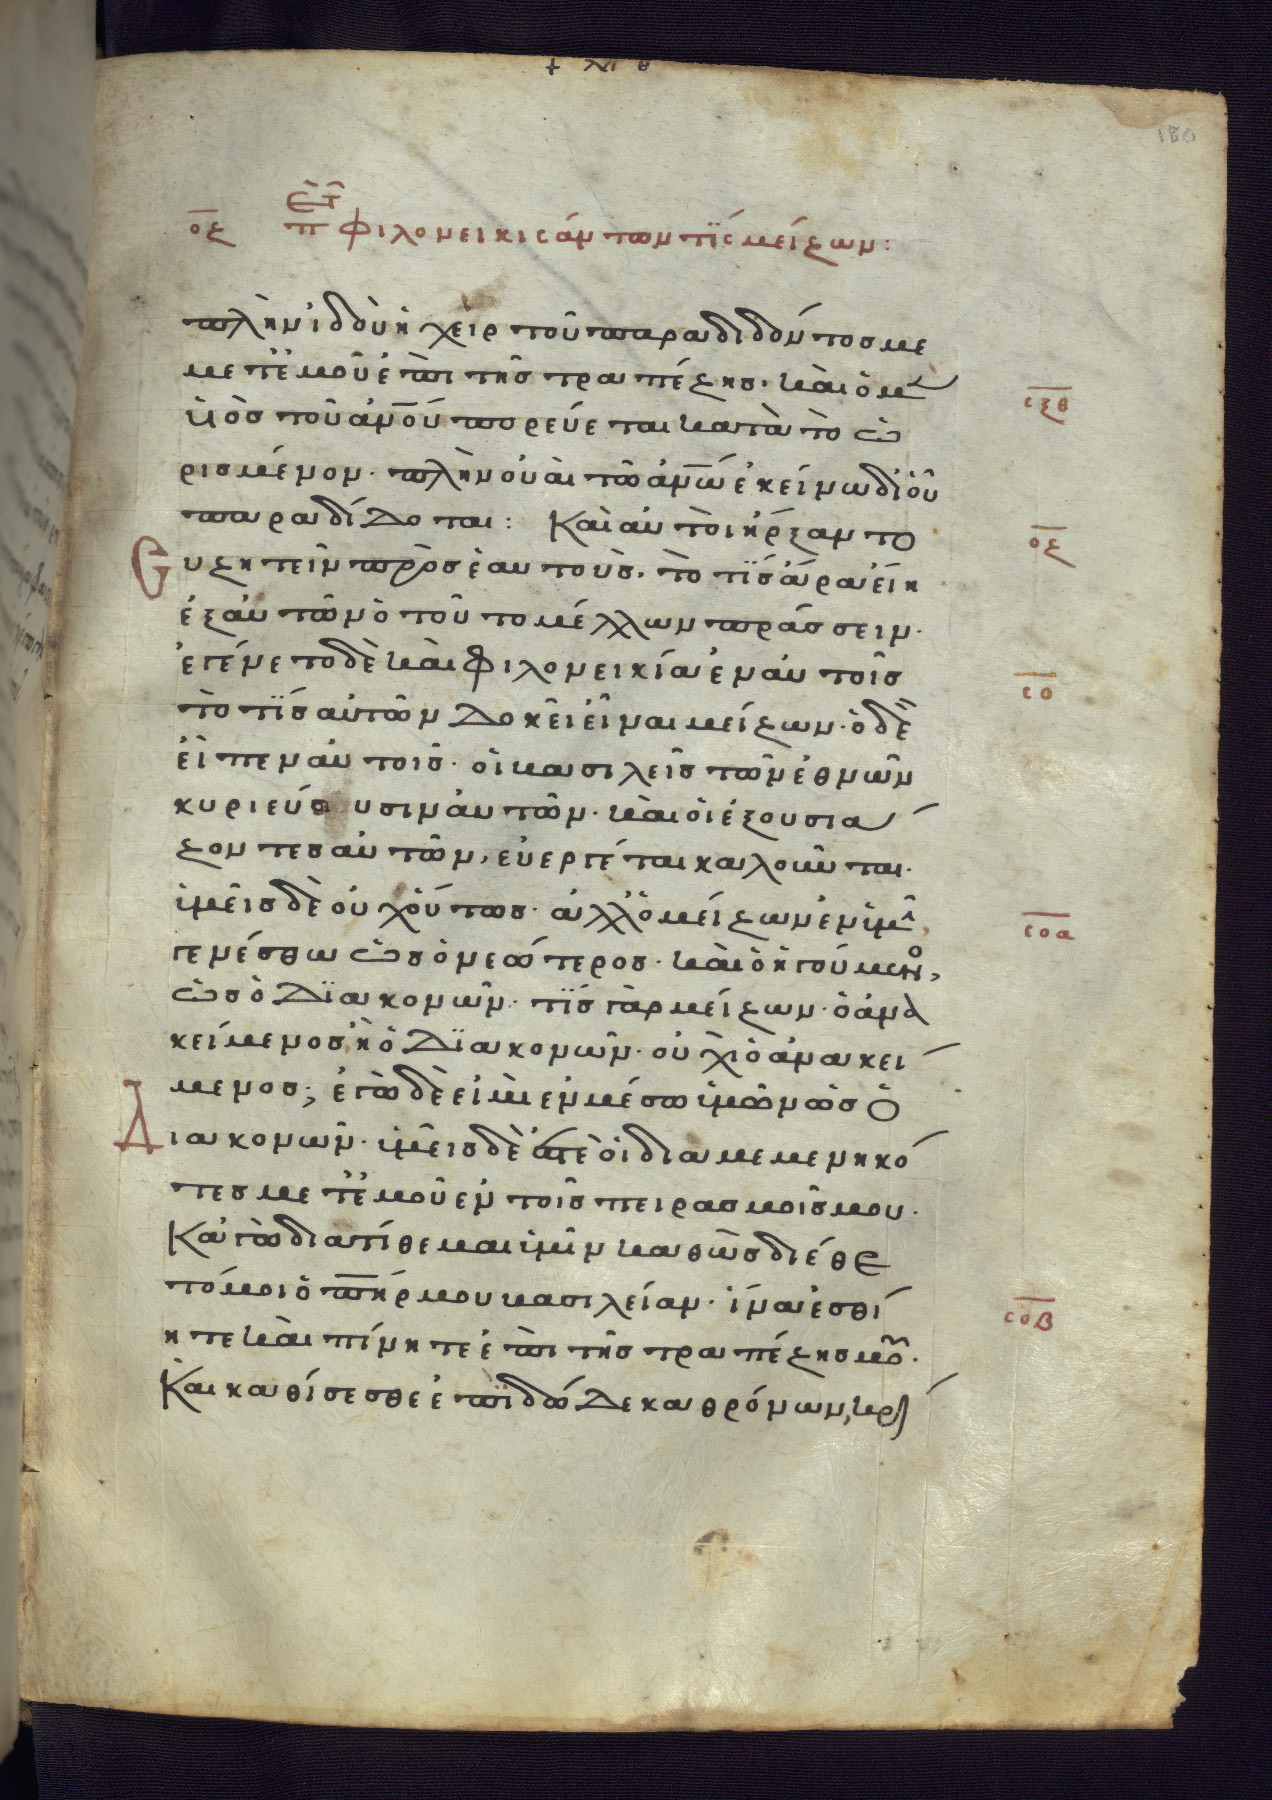 οϛ π φιλονεικησάντων τίς μείζων:
πλὴν ἰδοὺ ἡ χεὶρ τοῦ παραδιδόντος με
μετ' ἐμοῦ ἐπὶ τῆς τραπέζης. καὶ ὁ μ(ὲν)
υἱὸς τοῦ ἀν̅ο̅υ̅ πορεύεται κατὰ τὸ ὡ
ρισμένον. πλὴν οὐαὶ τῶ ἀν̅ω̅ ἐκείνω δι' οὗ
παραδίδοται: Καὶ αὐτοὶ ἤρξαντο
συζητεῖν πρὸς ἑαυτοὺς. τὸ τίς ἄρα εἴη
ἐξ αὐτῶν ὁ τοῦτο μέλλων πράσσειν.
ἐγένετο δὲ καὶ φιλονεικία ἐν αὐτοῖς
τὸ τίς αὐτῶν δοκεῖ εἶναι μείζων. ὁ δὲ
εἶπεν αὐτοῖς. οἱ βασιλεῖς τῶν ἐθνῶν
κυριεύουσιν αὐτῶν. καὶ οἱ ἐξουσιά
ζοντες αὐτῶν, εὐεργέται καλοῦνται.
ὑμεῖς δὲ οὐχ οὕτως. ἀλλ' ὁ μείζων ἐν ὑμῖν,
γενέσθω ὡς ὁ νεώτερος. καὶ ὁ ἡγούμενος,
ὡς ὁ διακονῶν. τίς γὰρ μείζων. ὁ ἀνα
κείμενος ἢ ὁ διακονῶν. οὐχὶ ὁ ἀνακεί
μενος; ἐγὼ δὲ εἰμὶ ἐν μέσω ὑμῶν ὡς ὁ
διακονῶν. ὑμεῖς δὲ ἐστὲ οἱ διαμεμενηκό
τες μετ' ἐμοῦ ἐν τοῖς πειρασμοῖς μου.
Κἀγὼ διατίθεμαι ὑμῖν καθὼς διέθε
τό μοι ὁ π̅η̅ρ μου βασιλείαν. ἵνα ἐσθί
ητε καὶ πίνητε ἐπὶ τῆς τραπέζης μου.
Καὶ καθίσεσθε ἐπὶ δώδεκα θρόνων, κρί
σξθ
οϛ
σο
σοα
σοβ